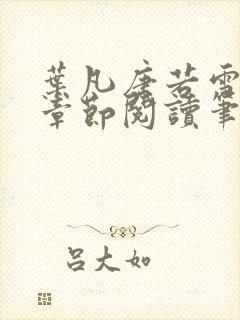 葉凡唐若雪
章節閱讀筆
呂大如